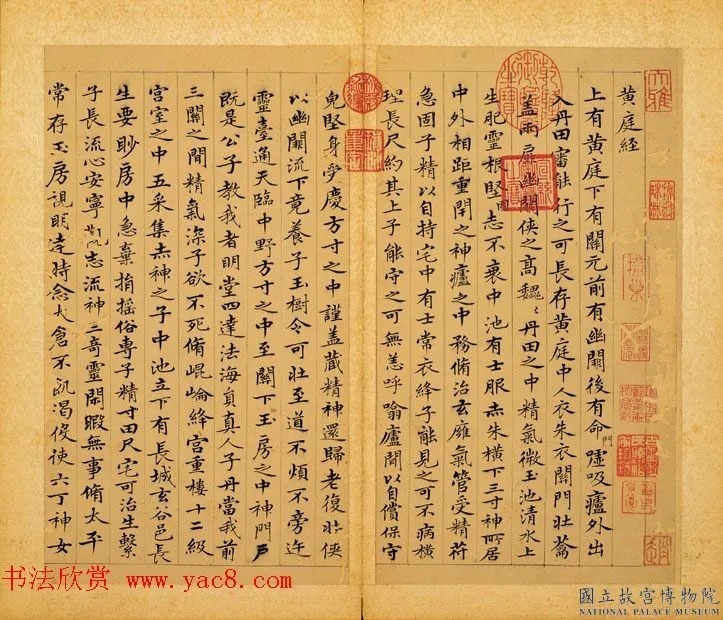 黃庭経
上有黃庭下有關元前有幽闕後有命門噓吸廬外出
入丹田審能行之可長存黃庭中人衣朱衣關門壯蘥
蓋兩扉幽闕俠之髙魏〻丹田之中精氣微玉池清水上
生肥靈根堅志不衰中池有士服赤朱横下三寸神所居
中外相距重閉之神廬之中務脩治玄廱氣管受精符
急固子精以自持宅中有士常衣絳子能見之可不病横
理長尺約其上子能守之可無恙呼噏廬間以自償保守
皃堅身受慶方寸之中謹盖藏精神還歸老復壯俠
以幽闕流下竟養子玉樹令可壯至道不煩不旁迕
靈臺通天臨中野方寸之中至關下玉房之中神門戶
既是公子教我者明堂四達法海員真人子丹當我前
三關之間精氣深子欲不死脩崐崘絳宫重樓十二級
宫室之中五采集赤神之子中池立下有長城玄谷邑長
生要眇房中急棄捐摇俗專子精寸田尺宅可治生繫
子長流心安寧觀志流神三奇靈閑暇無事脩太平
常存玉房視明達時念大倉不飢渴役使六丁神女
书法欣赏 www.yac8.com
國立故宮博物院
NATIONAL PALACE MUSEUM